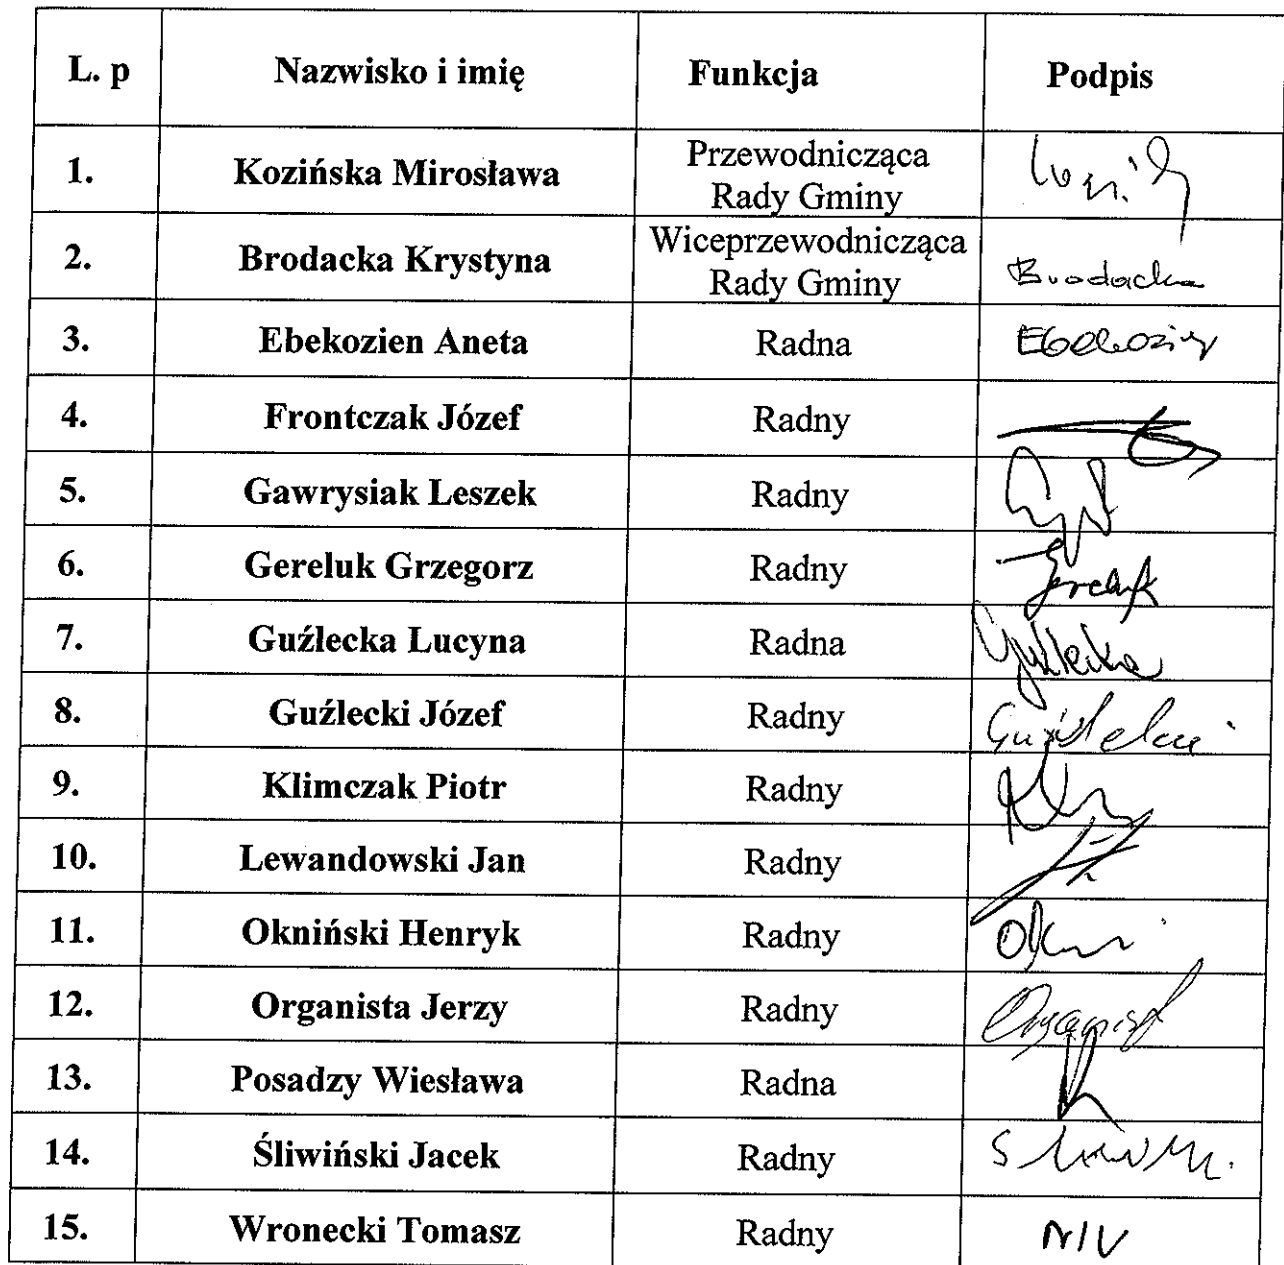 L. p Nazwisko i imię Funkcja Podpis
1. Kozińska Mirosława Przewodnicząca
Rady Gminy
2. Brodacka Krystyna Wiceprzewodnicząca
Rady Gminy Brodacka
3. Ebekozien Aneta Radna Ebekozien
4. Frontczak Józef Radny
5. Gawrysiak Leszek Radny
6. Gereluk Grzegorz Radny Gereluk
7. Guźlecka Lucyna Radna Guźlecka
8. Guźlecki Józef Radny Guźlecki
9. Klimczak Piotr Radny
10. Lewandowski Jan Radny
11. Okniński Henryk Radny
12. Organista Jerzy Radny Organista
13. Posadzy Wiesława Radna
14. Śliwiński Jacek Radny
15. Wronecki Tomasz Radny